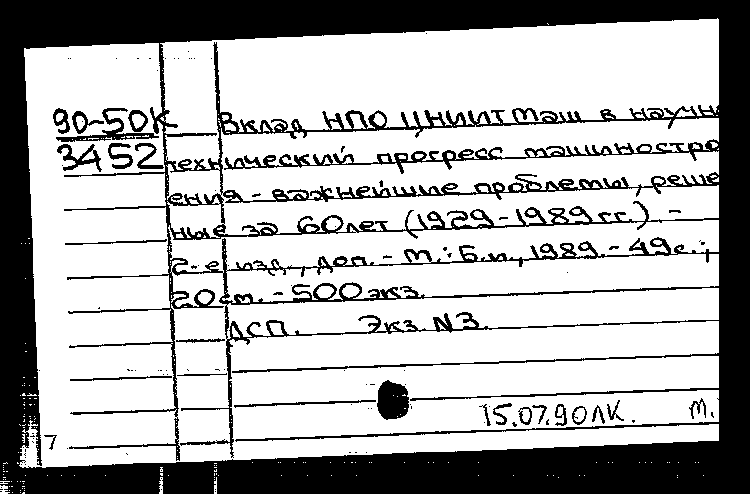 90-50К Вклад НПО ЦНИИТМаш в научно
3452 технический прогресс машиностро
ения - важнейшие проблемы, реше
ные за 60 лет (1929-1989 гг.). -
2-е изд., доп. - М.: Б.и., 1989. - 49с.;
20см. - 500 экз.
ДСП. Экз. N3.
15.07.90 ЛК. М.
7